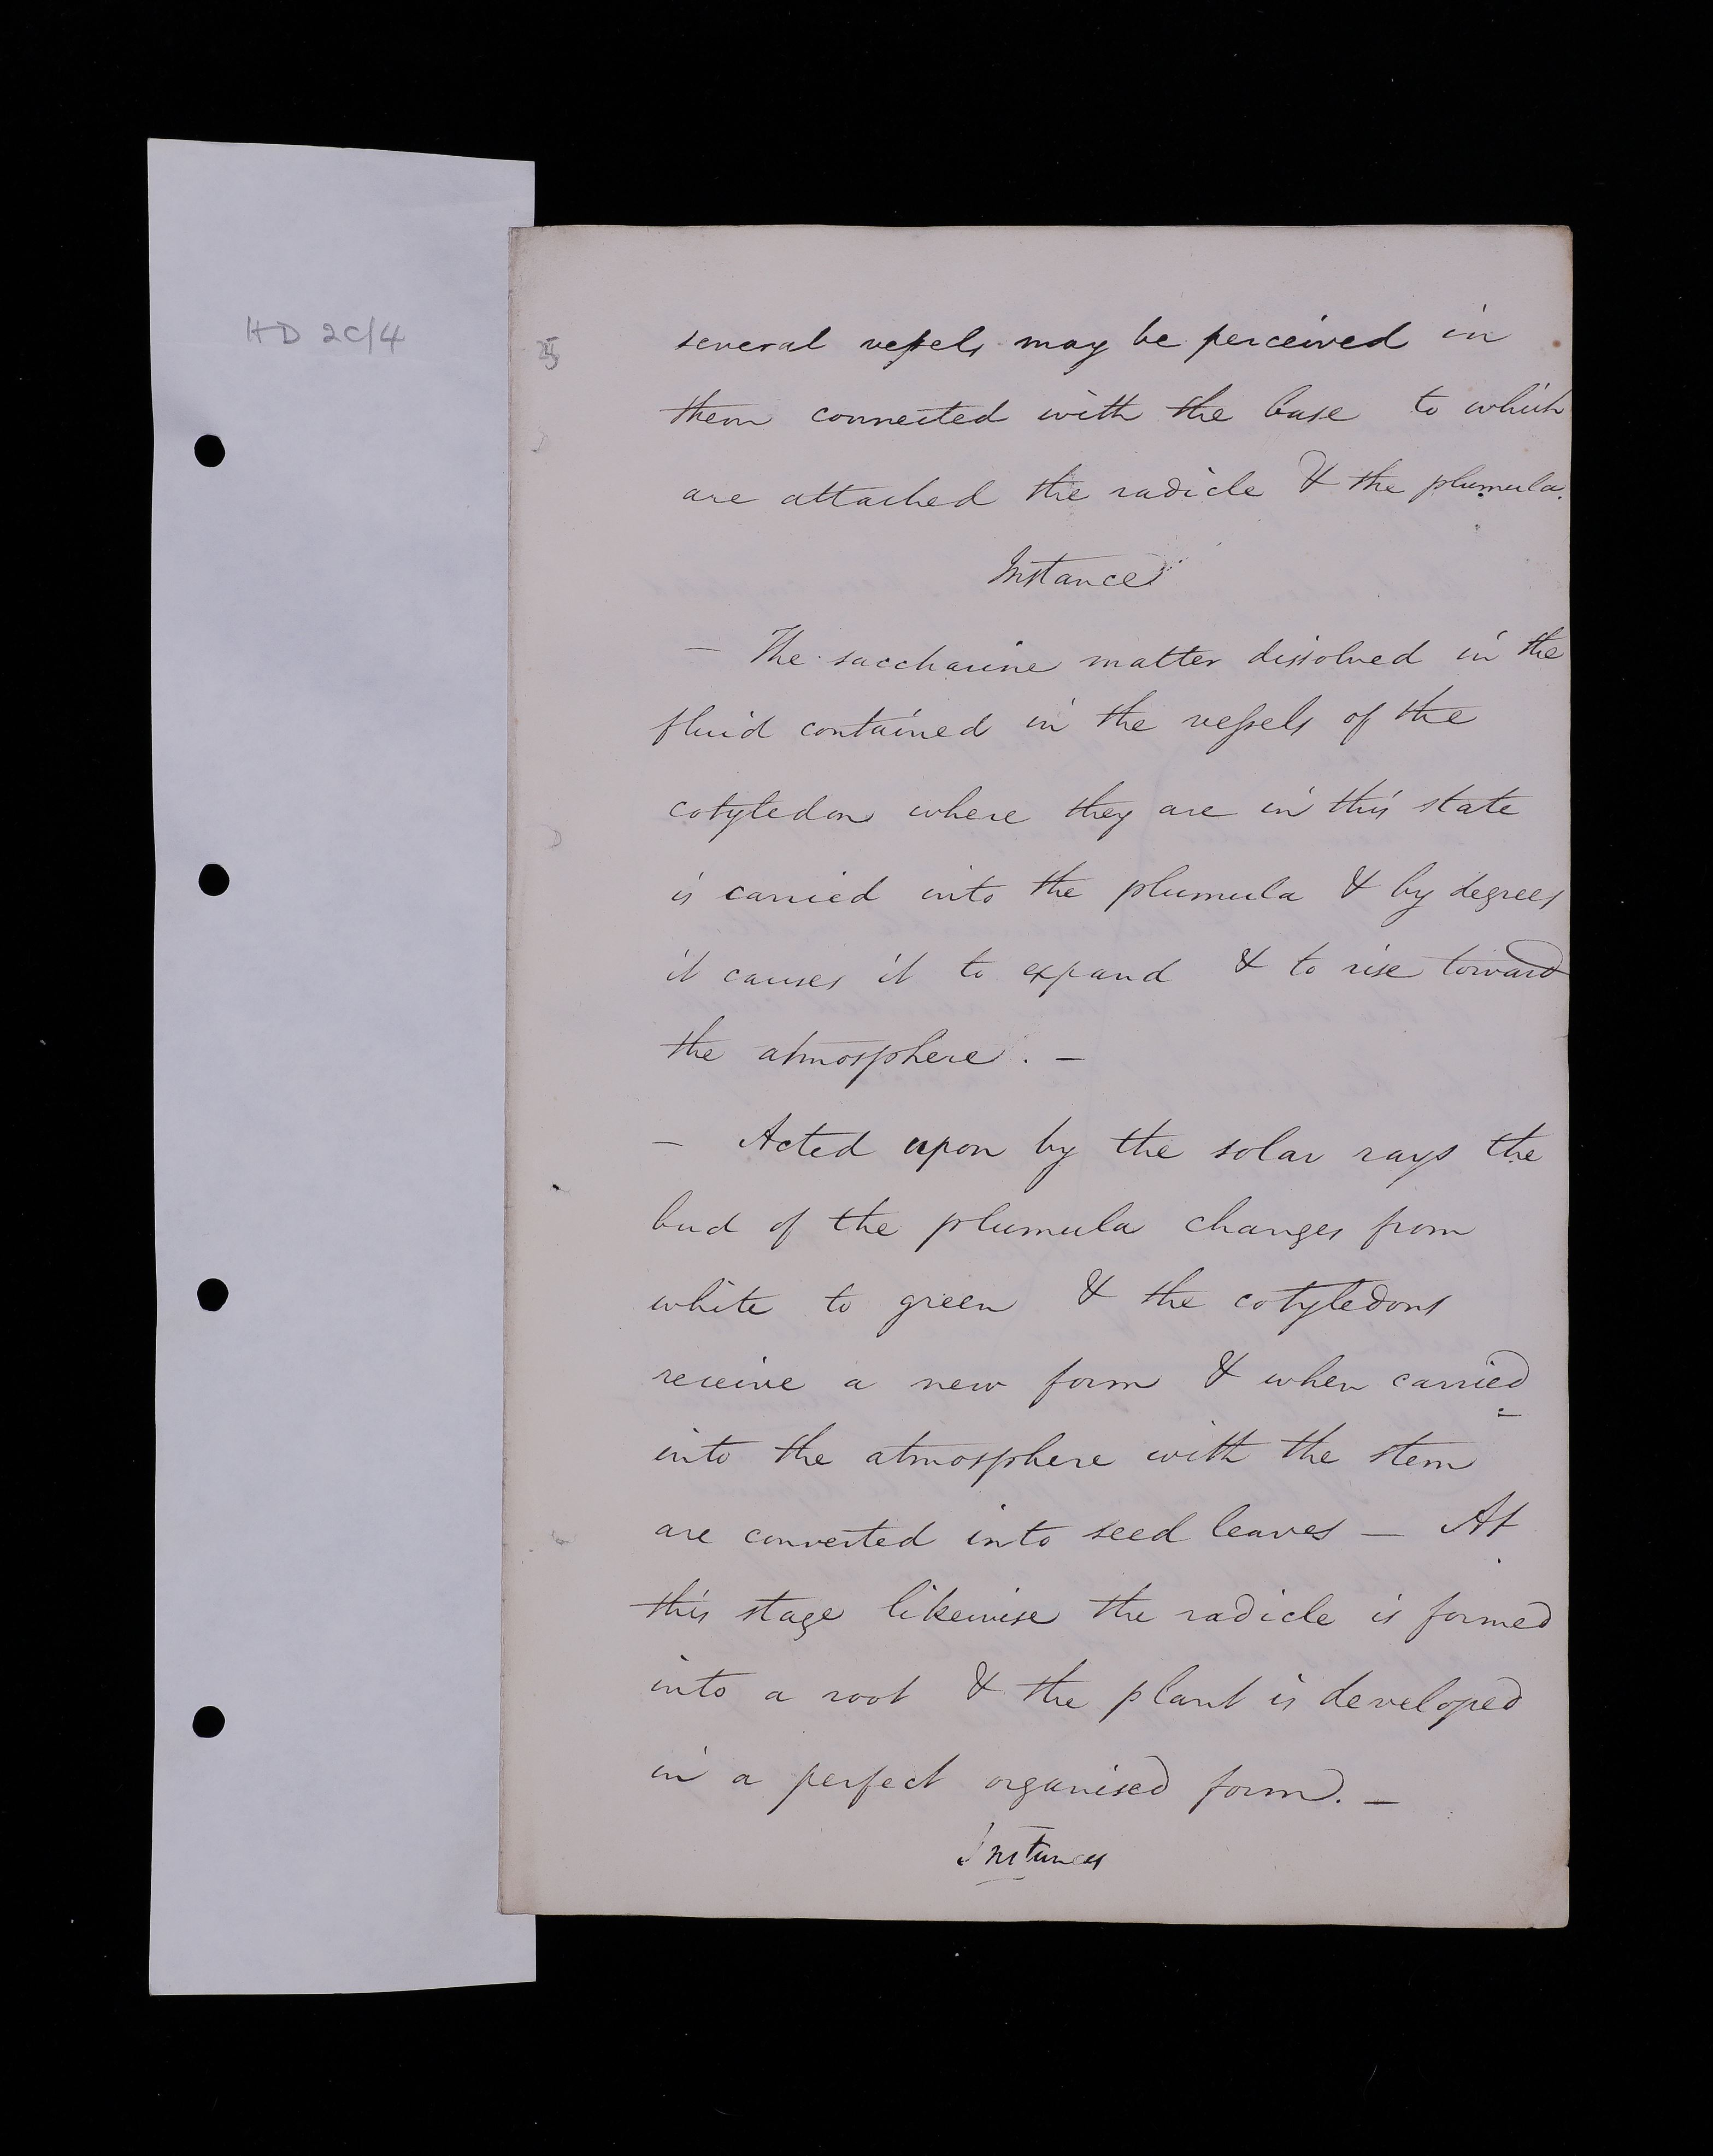 HD 2C/4
several vessels may be perceived in
them connected with the base to which
are attached the radicle & the plumula.
Instance
— The saccharine matter dissolved in the
fluid contained in the vessels of the
cotyledon where they are in this state
is carried into the plumula & by degrees
it causes it to expand & to rise toward
the atmosphere. —
— Acted upon by the solar rays the
bud of the plumula changes from
white to green & the cotyledons
receive a new form & when carried
into the atmosphere with the stem
are converted into seed leaves — At
this stage likewise the radicle is formed
into a root & the plant is developed
in a perfect organised form. —
Instances